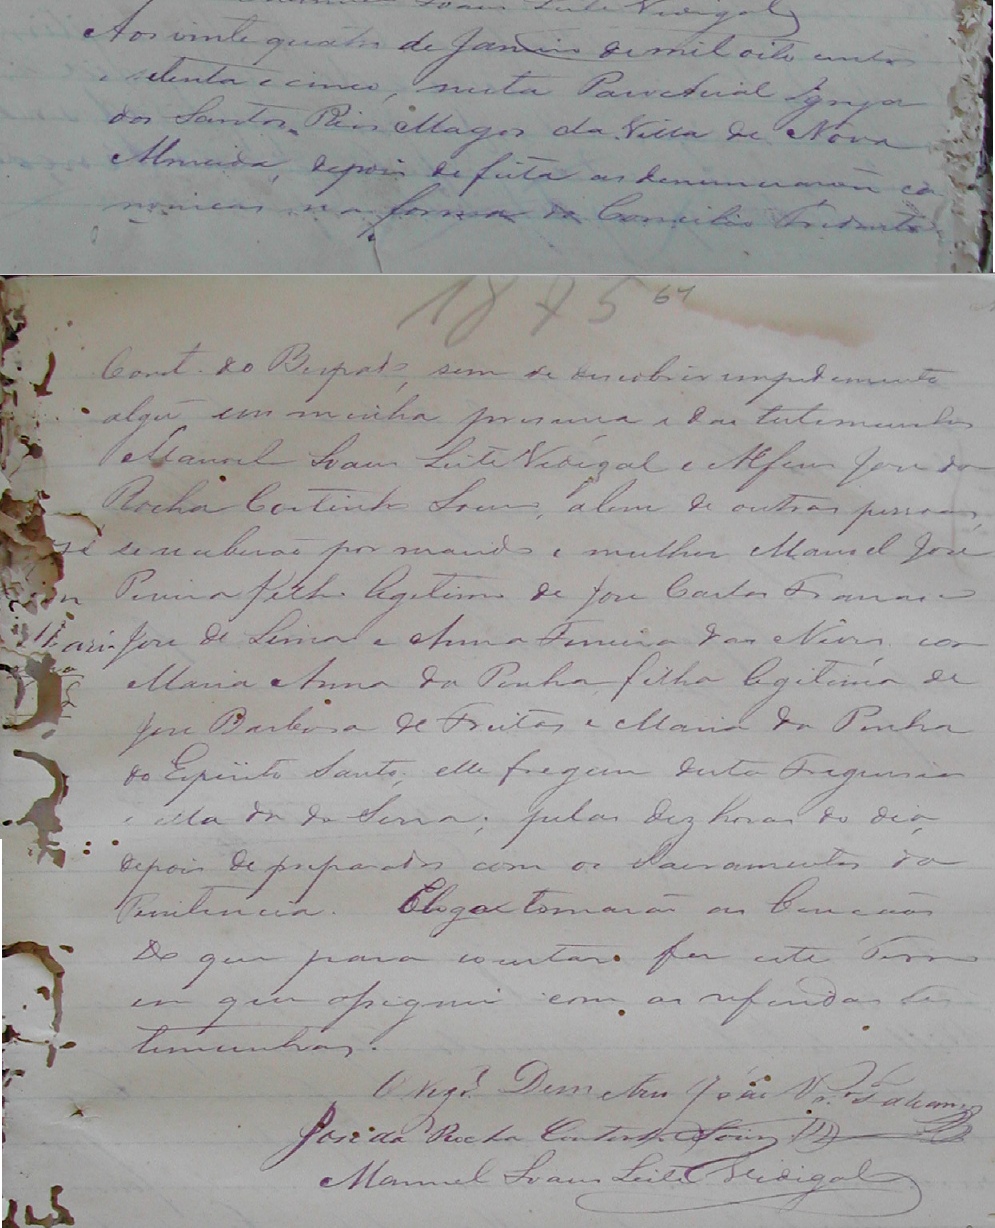 Manoel Soares Leite Vidigal
Aos vinte quatro de Janeiro de mil oito centos
e setenta e cinco, nesta Parochial Igreja
dos Santos Reis Magos da Villa de Nova
Almeida, depois de feita as denunciacoēs ca
nonicas na forma do Concilio Tridento
1875 64
Const. do Bispado, sem se descobrir impedimento
algū em minha presença e das testemunhas
Manoel Soares Leite Vidigal e Alferes Jose da
Rocha Coutinho Soares, alem de outras pessoas,
se receberão por marido e mulher Manoel José
Pereira filho legitimo de Jose Carlos Francisco
José de Lima e Anna Ferreira das Neves com
Maria Anna da Penha filha legitima de
Jose Barbosa de Freitas e Maria da Penha
do Espirito Santo, elle freguez desta Freguesia
e ella da da Serra; pelas dez horas do dia,
depois de preparados com os Sacramentos da
Penitencia. E logo tomarão as Bençaõs
Do que para constar fez este Termo
em que assignei com as referidas tes
temunhas.
O Vigr.º Demetrio José
José da Rocha Coutinho Soares
Manoel Soares Leite Vidigal